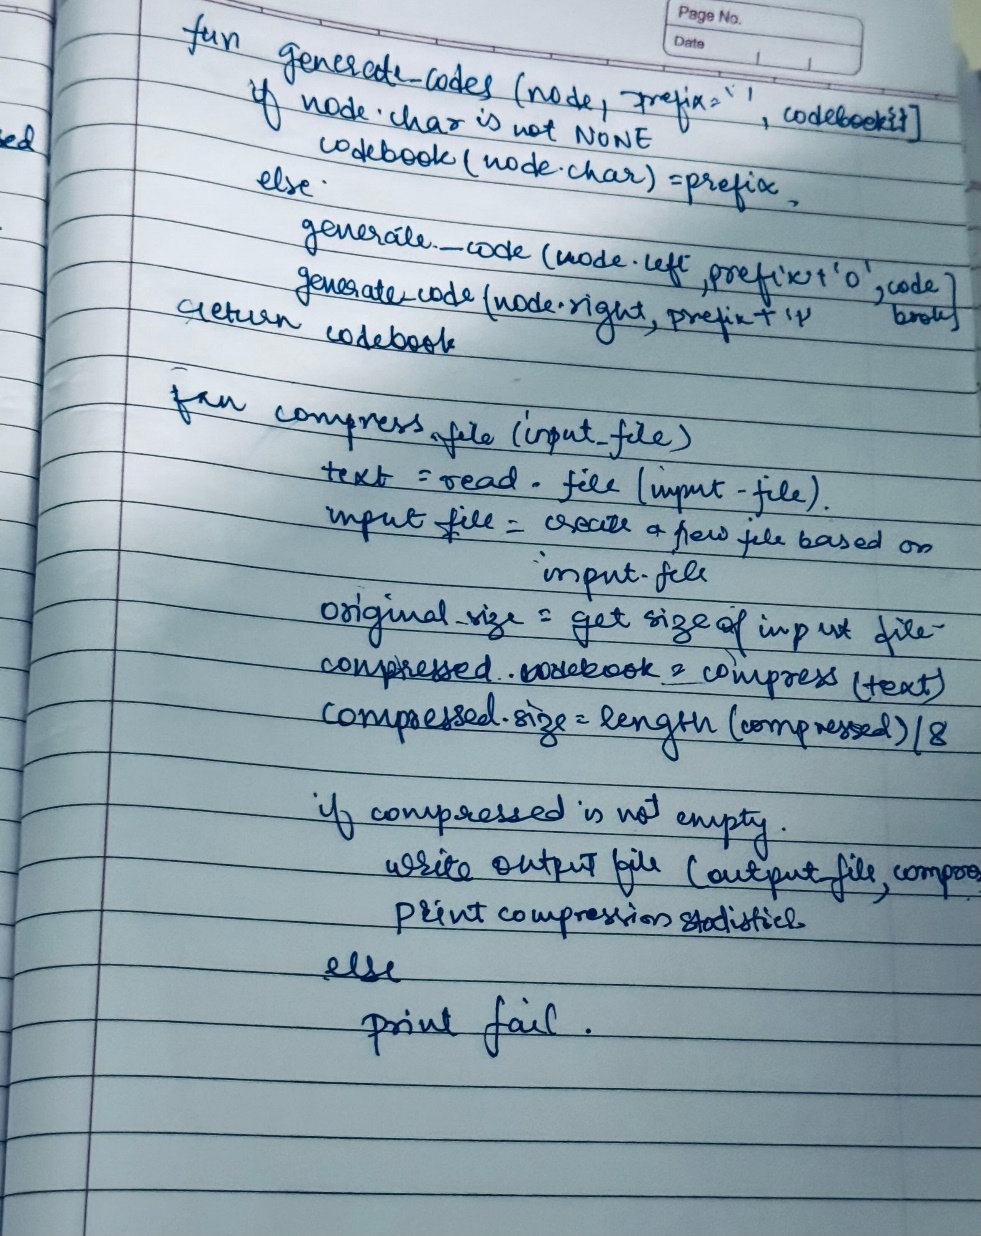 Page No.
Date
sed
fun generate_codes (node, prefix='', codebook{}]
if node.char is not NONE
codebook (node.char) = prefix,
else
generate_code (node.left, prefix + '0', code
book]
generate_code (node.right, prefix + '1'
return codebook
fun compress_file (input_file)
text = read. file (input-file).
input file = create a new file based on
input-file
original_size = get size of input file-
compressed. codebook = compress (text)
compressed.size = length (compressed)/8
if compressed is not empty.
write output file (output file, compres
print compression statistics
else
print fail.